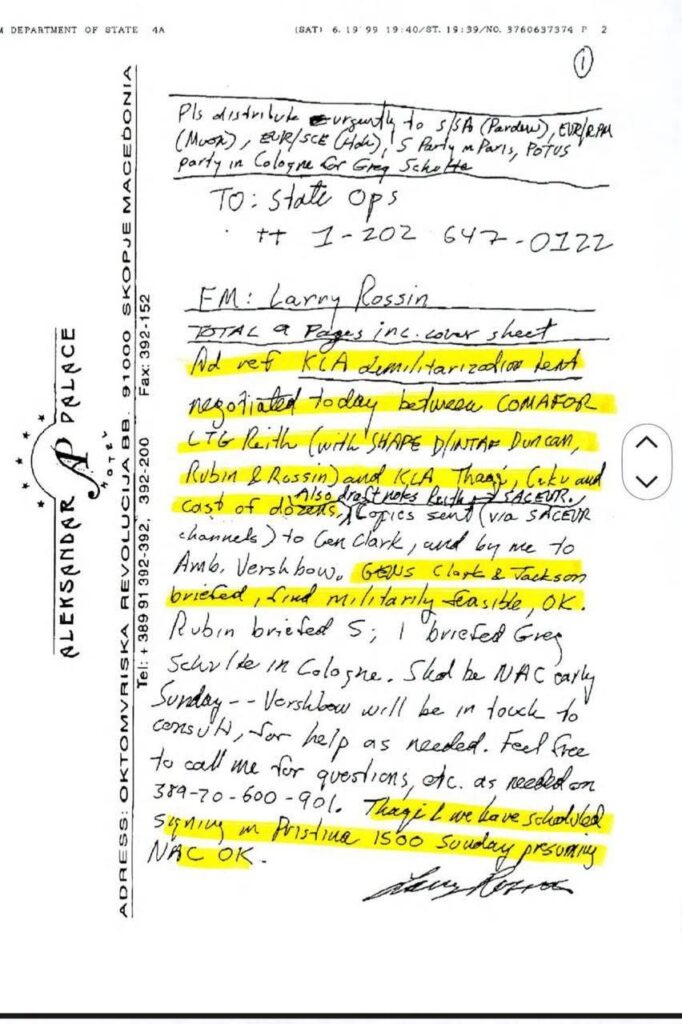 M DEPARTMENT OF STATE 4A (SAT) 6. 19' 99 19:40/ST. 19:39/NO. 3760637374 P 2
1
Pls distribute urgently to S/SA (Pardew), EUR/RPM
(Moon), EUR/SCE (Hoh), S Party in Paris, POTUS
party in Cologne for Greg Schulte
TO: State Ops
++ 1-202 647-0122
FM: Larry Rossin
TOTAL 9 Pages inc. cover sheet
Ad ref KLA demilitarization text
negotiated today between COMAFOR
LTG Reith (with SHAPE D/INTAF Duncan,
Rubin & Rossin) and KLA Thaqi, Ceku and
Also draft notes Reith → SACEUR.
cast of dozens. Copies sent (via SACEUR
channels) to Gen Clark, and by me to
Amb. Vershbow. GENS Clark & Jackson
briefed, find militarily feasible, OK.
Rubin briefed S; I briefed Greg
Schulte in Cologne. Shd be NAC early
Sunday -- Vershbow will be in touch to
consult, for help as needed. Feel free
to call me for questions, etc. as needed on
389-70-600-901. Thaqi & we have scheduled
signing in Pristina 1500 Sunday presuming
NAC OK.
Larry Rossin
ALEKSANDAR AP PALACE
HOTEL
ADRESS: OKTOMVRISKA REVOLUCIJA BB. 91000 SKOPJE MACEDONIA
Tel: + 389 91 392-392, 392-200 Fax: 392-152